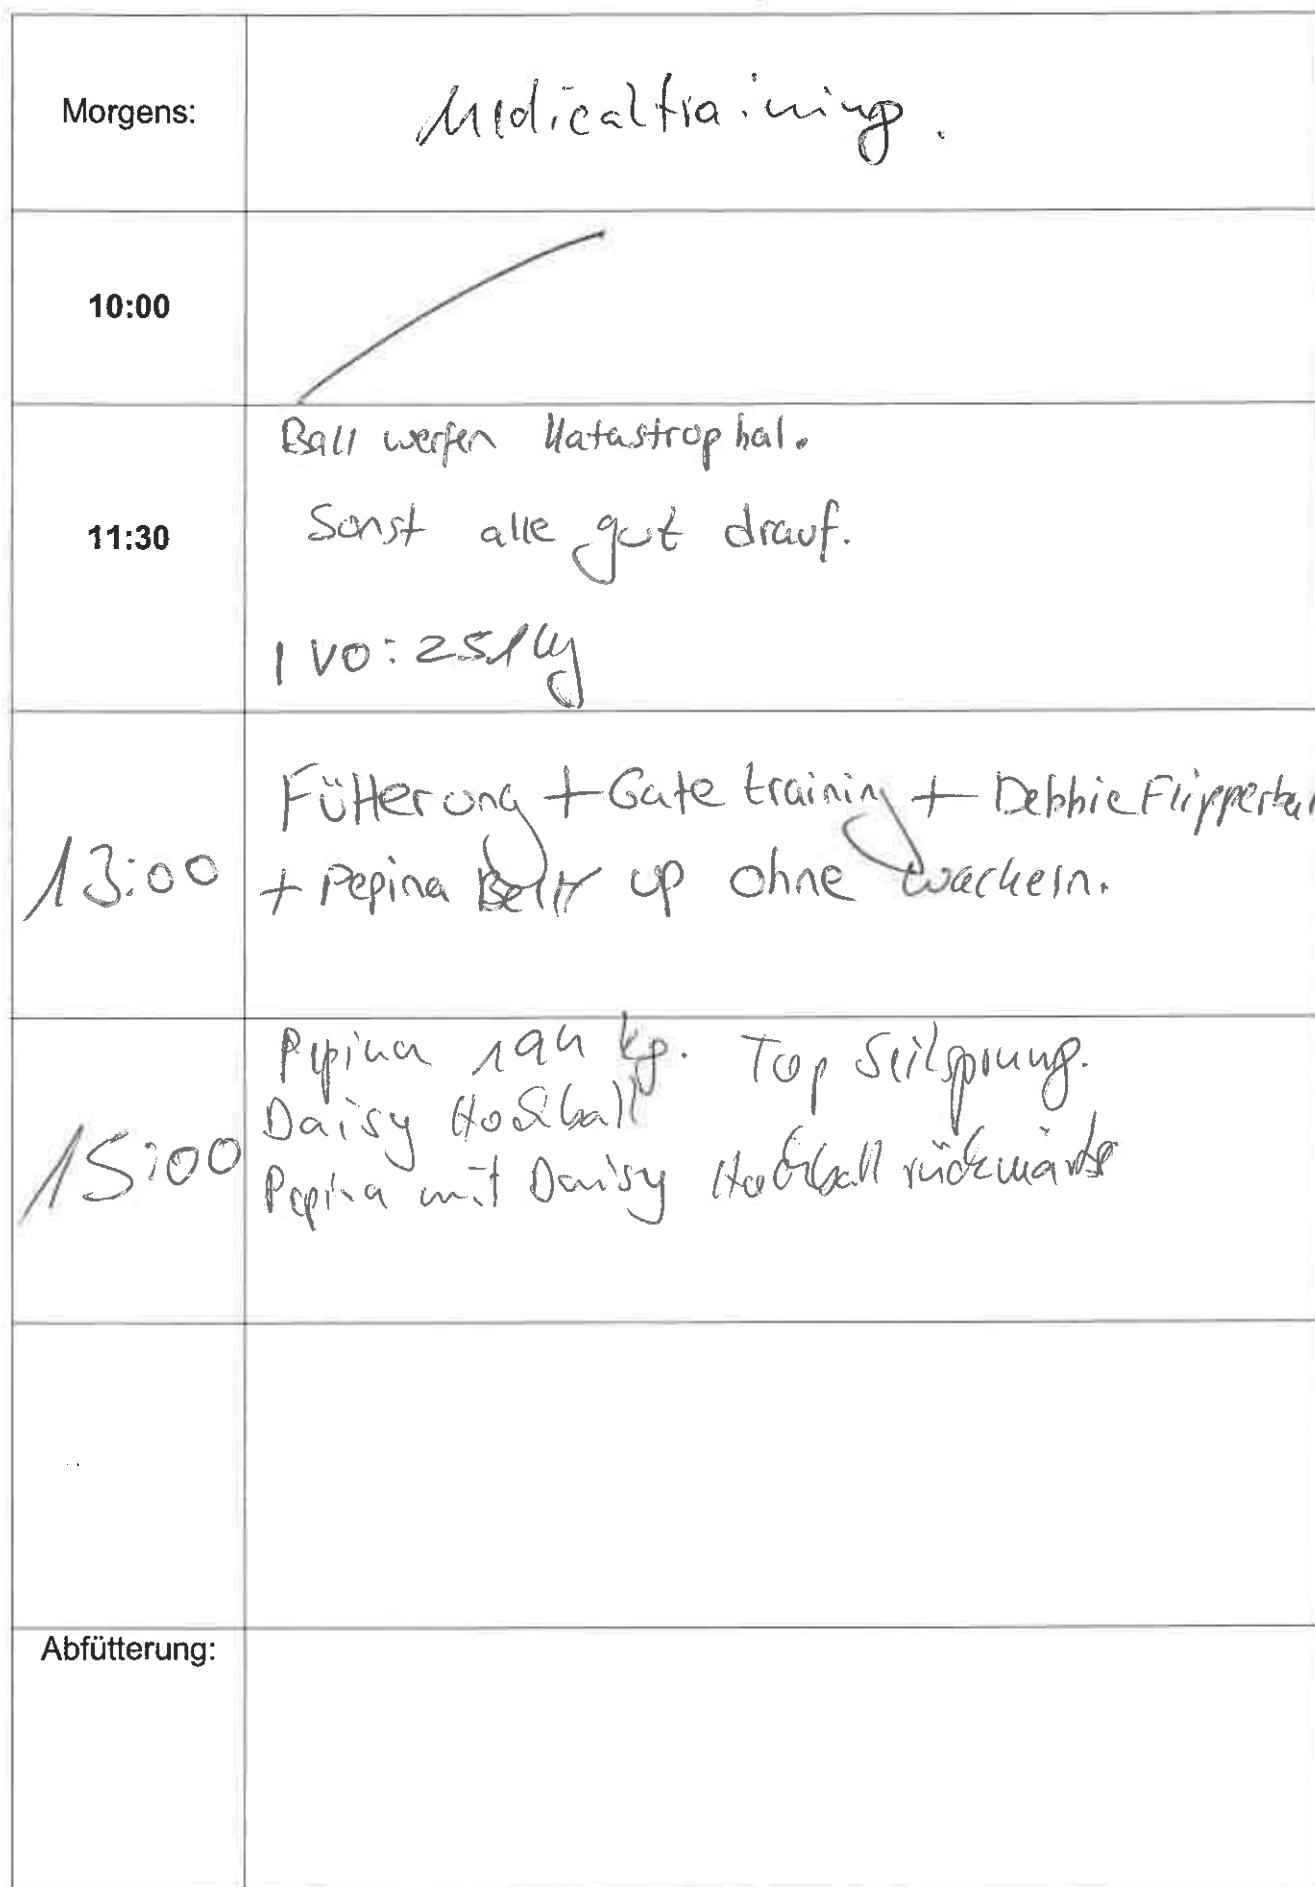 Morgens:
Medicaltraining.
10:00
11:30
Ball werfen Katastrophal.
Sonst alle gut drauf.
IVO: 251kg
13:00
Fütterung + Gate training + Debbie
+ Pepina up ohne wackeln.
15:00
Pepina 194 kg. Top Seilsprung.
Daisy Hochball
Pepina mit Daisy Hochball rückwärts
Abfütterung: